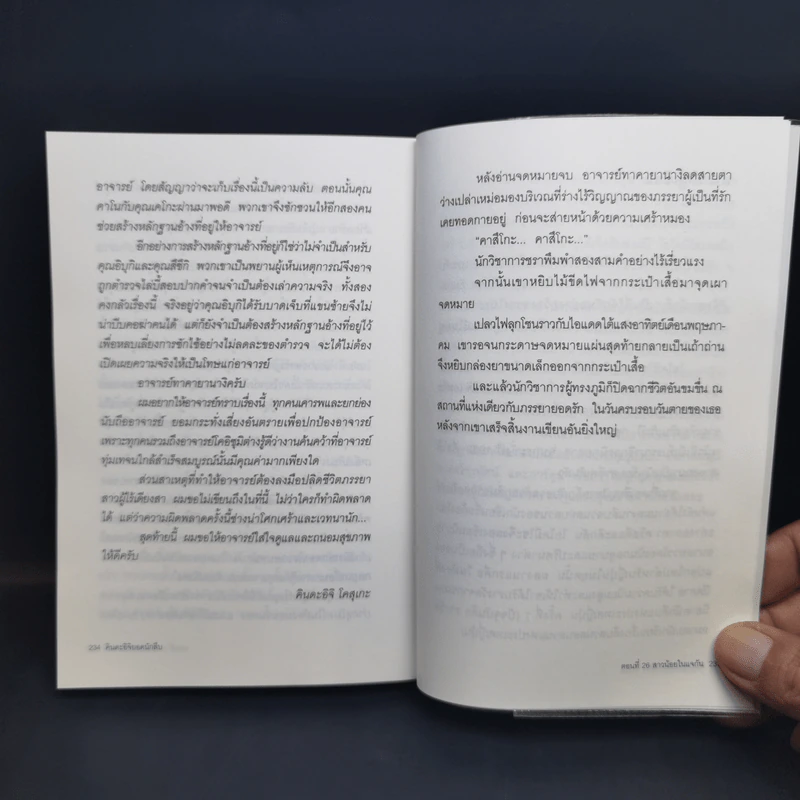 อาจารย์ โดยสัญญาว่าจะเก็บเรื่องนี้เป็นความลับ ตอนนั้นคุณ
คาโนกับคุณเคโกะผ่านมาพอดี พวกเขาจึงชักชวนให้อีกสองคน
ช่วยสร้างหลักฐานอ้างที่อยู่ให้อาจารย์
อีกอย่างการสร้างหลักฐานอ้างที่อยู่ก็ใช่ว่าไม่จำเป็นสำหรับ
คุณอิบุกิและคุณสึซึกิ พวกเขาเป็นพยานผู้เห็นเหตุการณ์จึงอาจ
ถูกตำรวจไล่บี้สอบปากคำจนจำเป็นต้องเล่าความจริง ทั้งสอง
คงกลัวเรื่องนี้ จริงอยู่ว่าคุณอิบุกิได้รับบาดเจ็บที่แขนซ้ายจึงไม่
น่าบีบคอฆ่าคนได้ แต่ก็ยังจำเป็นต้องสร้างหลักฐานอ้างที่อยู่ไว้
เพื่อหลบเลี่ยงการซักไซ้อย่างไม่ลดละของตำรวจ จะได้ไม่ต้อง
เปิดเผยความจริงให้เป็นโทษแก่อาจารย์
อาจารย์ทาคายานางิครับ
ผมอยากให้อาจารย์ทราบเรื่องนี้ ทุกคนเคารพและยกย่อง
นับถืออาจารย์ ยอมกระทั่งเสี่ยงอันตรายเพื่อปกป้องอาจารย์
เพราะทุกคนรวมถึงอาจารย์โคอิซุมิต่างรู้ดีว่างานค้นคว้าที่อาจารย์
ทุ่มเทจนใกล้สำเร็จสมบูรณ์นั้นมีคุณค่ามากเพียงใด
ส่วนสาเหตุที่ทำให้อาจารย์ต้องลงมือปลิดชีวิตภรรยา
สาวผู้ไร้เดียงสา ผมขอไม่เขียนถึงในที่นี้ ไม่ว่าใครก็ทำผิดพลาด
ได้ แต่ว่าความผิดพลาดครั้งนี้ช่างน่าโศกเศร้าและเวทนานัก...
สุดท้ายนี้ ผมขอให้อาจารย์ใส่ใจดูแลและถนอมสุขภาพ
ให้ดีครับ
คินดะอิจิ โคสุเกะ
234 คินดะอิจิยอดนักสืบ
หลังอ่านจดหมายจบ อาจารย์ทาคายานางิลดสายตา
ว่างเปล่าเหม่อมองบริเวณที่ร่างไร้วิญญาณของภรรยาผู้เป็นที่รัก
เคยทอดกายอยู่ ก่อนจะส่ายหน้าด้วยความเศร้าหมอง
“คาสึโกะ... คาสึโกะ...”
นักวิชาการชราพึมพำสองสามคำอย่างไร้เรี่ยวแรง
จากนั้นเขาหยิบไม้ขีดไฟจากกระเป๋าเสื้อมาจุดเผา
จดหมาย
เปลวไฟลุกโชนราวกับไอแดดใต้แสงอาทิตย์เดือนพฤษภา-
คม เขารอจนกระดาษจดหมายแผ่นสุดท้ายกลายเป็นเถ้าถ่าน
จึงหยิบกล่องยาขนาดเล็กออกจากกระเป๋าเสื้อ
และแล้วนักวิชาการผู้ทรงภูมิก็ปิดฉากชีวิตอันขมขื่น ณ
สถานที่แห่งเดียวกับภรรยายอดรัก ในวันครบรอบวันตายของเธอ
หลังจากเขาเสร็จสิ้นงานเขียนอันยิ่งใหญ่
ตอนที่ 26 สาวน้อยในแจกัน